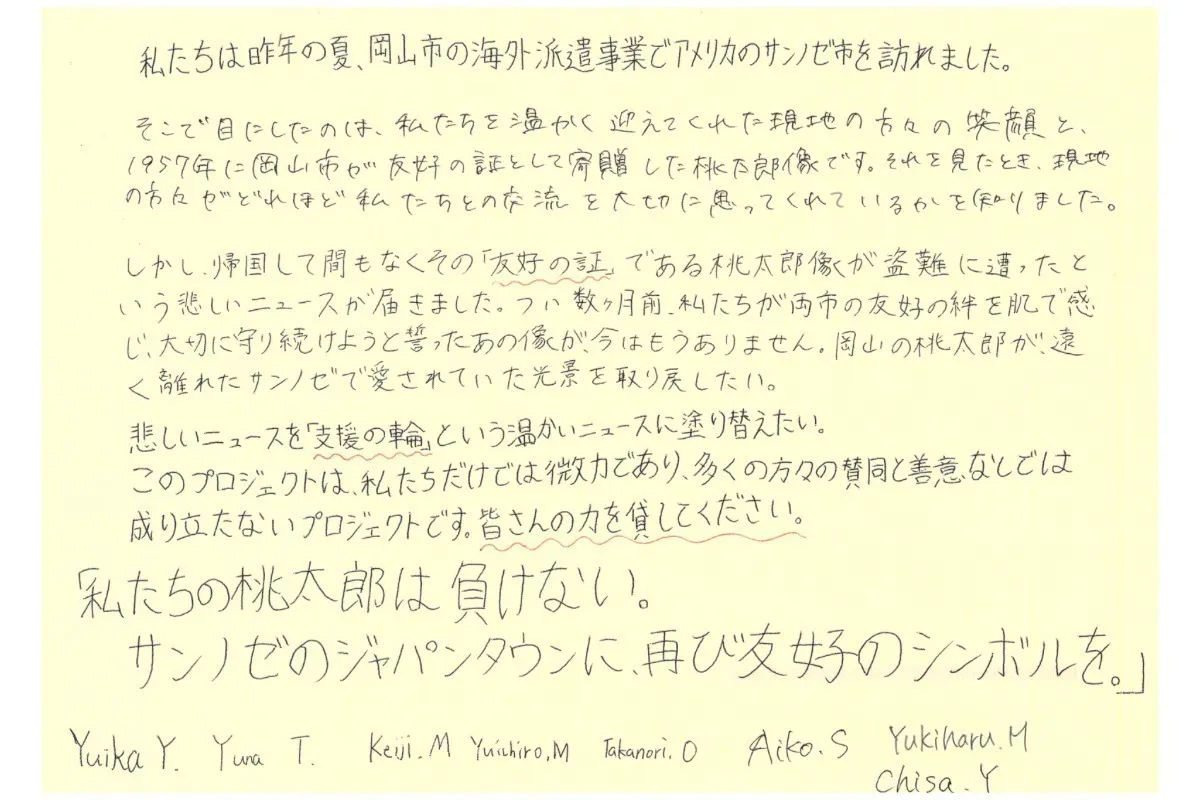 私たちは昨年の夏、岡山市の海外派遣事業でアメリカのサンノゼ市を訪れました。
そこで目にしたのは、私たちを温かく迎えてくれた現地の方々の笑顔と、
1957年に岡山市が友好の証として寄贈した桃太郎像です。それを見たとき、現地
の方々がどれほど私たちとの交流を大切に思ってくれているかを知りました。
しかし、帰国して間もなくその「友好の証」である桃太郎像が盗難に遭ったと
いう悲しいニュースが届きました。つい数ヶ月前、私たちが両市の友好の絆を肌で感
じ、大切に守り続けようと誓ったあの像が、今はもうありません。岡山の桃太郎が、遠
く離れたサンノゼで愛されていた光景を取り戻したい。
悲しいニュースを「支援の輪」という温かいニュースに塗り替えたい。
このプロジェクトは、私たちだけでは微力であり、多くの方々の賛同と善意なしでは
成り立たないプロジェクトです。皆さんの力を貸してください。
「私たちの桃太郎は負けない。
サンノゼのジャパンタウンに、再び友好のシンボルを。」
Yuika Y. Yuna T. Keiji.M Yuichiro,M Takanori.O Aiko.S Yukiharu.M
Chisa.Y